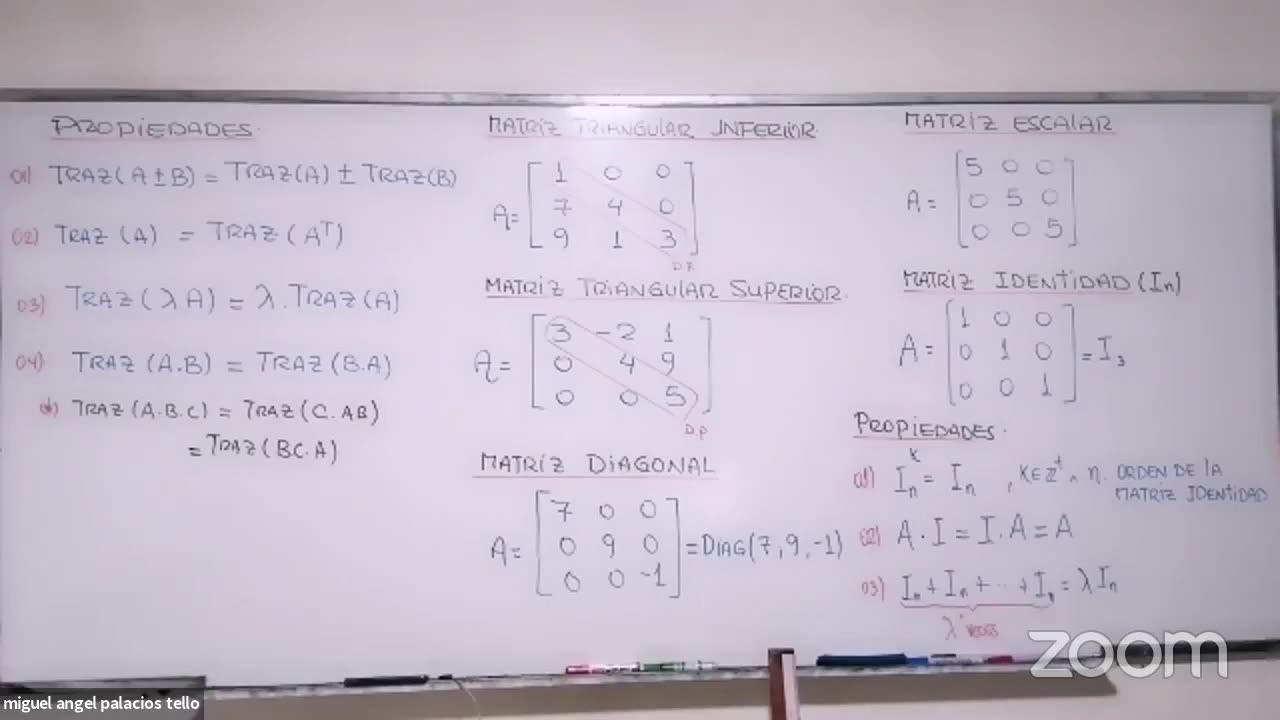 PROPIEDADES.
01) TRAZ(A ± B) = TRAZ(A) ± TRAZ(B)
02) TRAZ (A) = TRAZ (Aᵀ)
03) TRAZ (λ A) = λ . TRAZ (A)
04) TRAZ (A.B) = TRAZ (B.A)
TRAZ (A.B.C) = TRAZ (C. AB)
= TRAZ (BC.A)
MATRIZ TRIANGULAR INFERIOR.
A = [ 1 0 0
7 4 0
9 1 3 ]
D.P.
MATRIZ TRIANGULAR SUPERIOR.
A = [ 3 -2 1
0 4 9
0 0 5 ]
D.P
MATRIZ DIAGONAL
A = [ 7 0 0
0 9 0
0 0 -1 ] = DIAG(7, 9, -1)
MATRIZ ESCALAR
A = [ 5 0 0
0 5 0
0 0 5 ]
MATRIZ IDENTIDAD (In)
A = [ 1 0 0
0 1 0
0 0 1 ] = I₃
PROPIEDADES.
01) Iₙᴷ = Iₙ , K∈ℤ⁺ ∧ n. ORDEN DE LA
MATRIZ IDENTIDAD
02) A . I = I . A = A
03) Iₙ + Iₙ + ... + Iₙ = λ Iₙ
λ VECES
zoom
miguel angel palacios tello